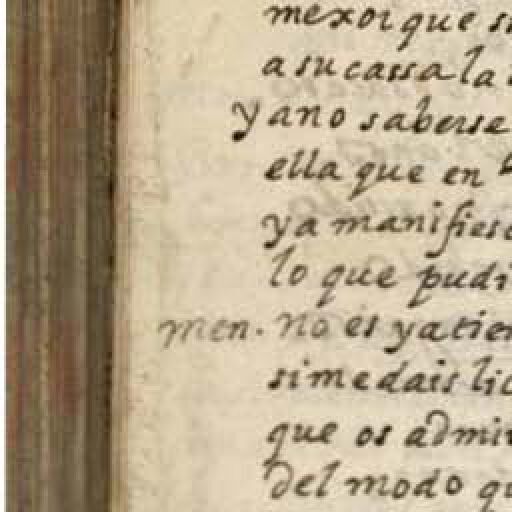 mexor que si
a su cassa la
y a no saberse
ella que en
ya manifies
lo que pudi
men. no es ya tie
si me dais lic
que os admi
del modo qu